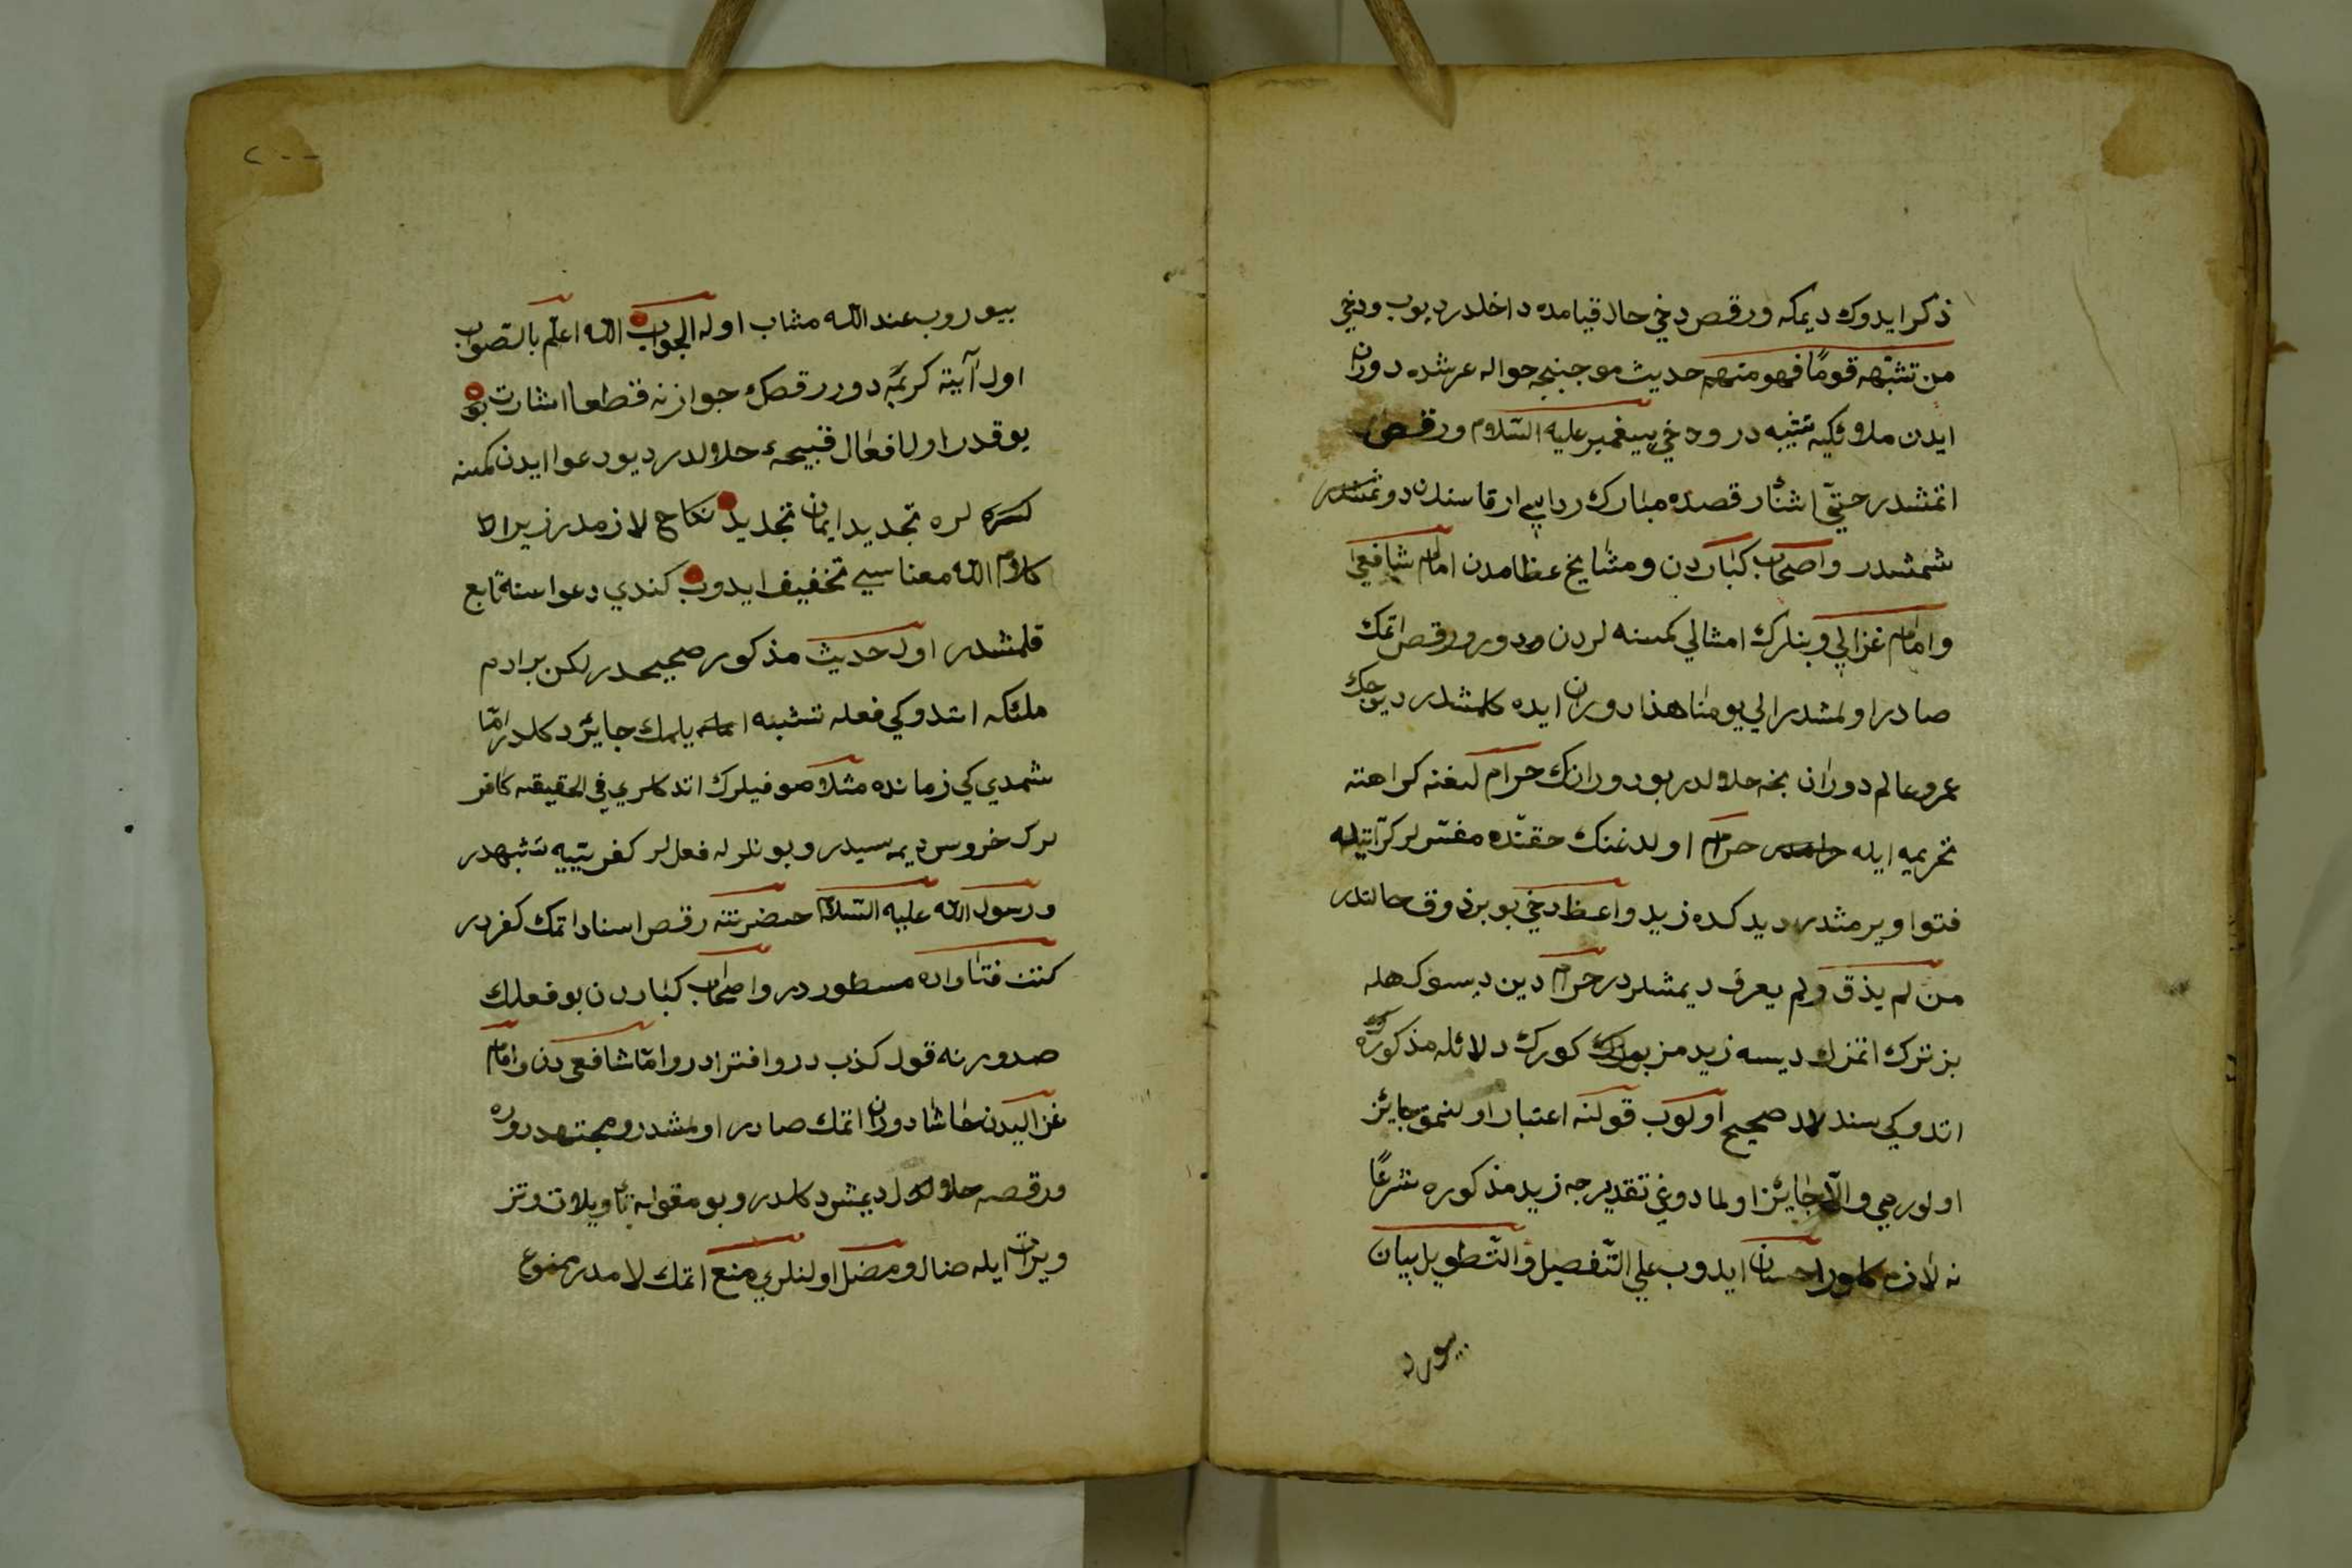 ذكر ايدوك ديمكه ورقص دخي حال قيامده داخلدر ديوب ودخي
من تشبّهه قومًا فهو منهم حديث موجبنجه حواله عرشده دوران
ايدن ملائكيه تشبيه در ودخي پيغمبر عليه السّلام ورقص
اتمشدر حتّي اشنار قصده مبارك رداسي ارقاسندن دوشمشدر
شمشدر واصحاب كباردن ومشايخ عظامدن امام شافعي
وامام غزالي وبنلرك امثالي كمسنه لردن دور ورقص اتمك
صادر اولمشدر الي يومنا هذا دوران ايده كلمشدر ديوجك
عمرو عالم دوران بخه حلالدر بو دورانك حرام لغنه كراهته
تحريميه ايله حرام اولدغنك حقنده مفسّرلر كرّاتيله
فتوا ويرمشدر ديدكده زيد واعظ دخي بو بر ذوق حالتدر
من لم يذق ولم يعرف ديمشلردر حرام دين ديسوك هله
بز ترك اتمزك ديسه زيد مزبورك كورك دلائله مذكوره
اتدوكي سندلد صحيح اولوب قولنه اعتبار اولنمق جائز
اولورمي والّا جائز اولمادوغي تقديرجه زيد مذكوره شرعًا
نه لازم كلور احسان ايدوب علي التّفصيل والتّطويل بيان
بيورد
٢٠٠
بيوروب عند الله مثاب اوله الجواب الله اعلم بالصّواب
اول آيته كريمه دور رقصك جوازنه قطعا اشارت
يوقدر اول افعال قبيحه ء حلالدر ديو دعوا ايدن كمسنه
لره تجديد ايمان تجديد نكاح لازمدر زيرا
كلام الله معناسي تخفيف ايدوب كندي دعواسنه تابع
قلمشدر اول حديث مذكور صحيحدر لكن بر ادم
ملئكه اتدوكي فعله تشبيه ايلمك جائز دكلدر امّا
شمدي كي زمانده مثلا صوفيلرك اتدكلري في الحقيقه كافر
لرك خروس ديمه سيدر وبونلر له فعللر كفريتيه تشبهدر
ورسول الله عليه السّلام حضرتنه رقص اسناد اتمك كفردر
كتب فتاواده مسطوردر واصحاب كباردن بو فعلك
صدورنه قول كذب در وافترادر وامّا شافعي دن وامام
غزاليدن حاشا دوران اتمك صادر اولمشدر ومجتهد دوره
ورقصه حلالدر ديمش دكلدر وبو مقوله تأويلات وتز
ويرات ايله ضال ومضل اولنلري منع اتمك لازمدر ممنوع